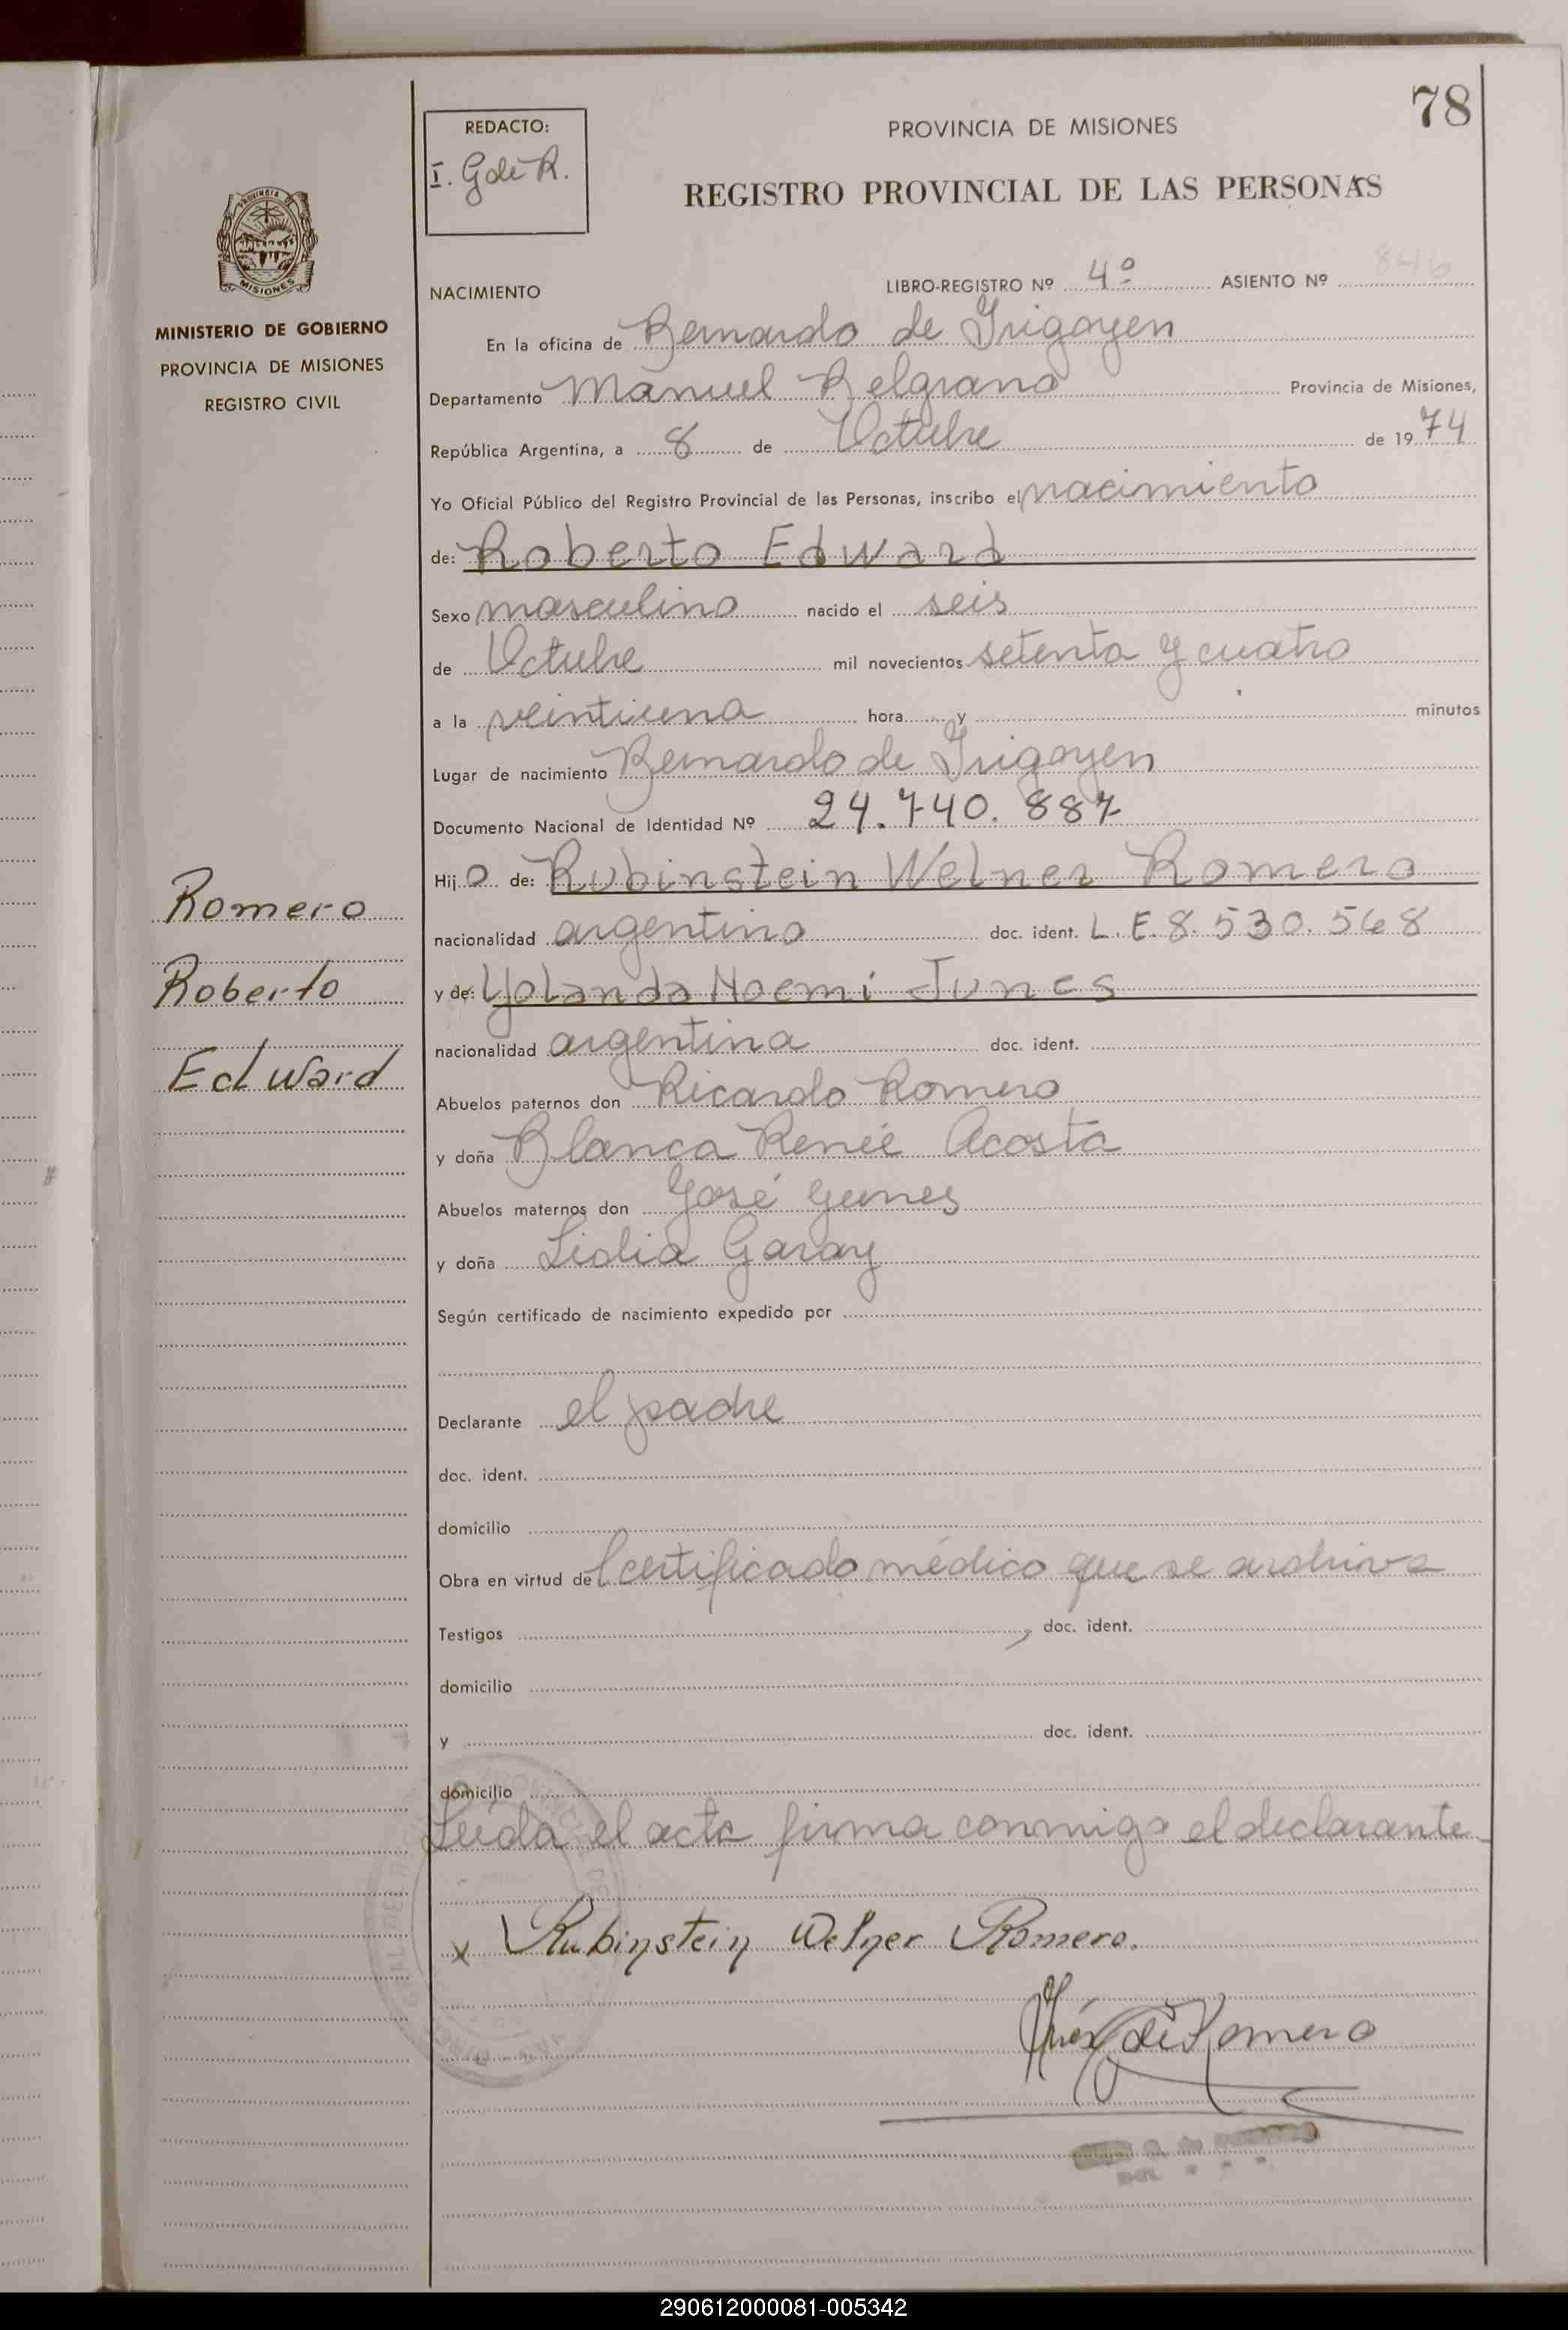 78
REDACTO:
I. G de R.
PROVINCIA DE MISIONES
REGISTRO PROVINCIAL DE LAS PERSONAS
MISIONES
MINISTERIO DE GOBIERNO
PROVINCIA DE MISIONES
REGISTRO CIVIL
NACIMIENTO LIBRO-REGISTRO Nº 4º ASIENTO Nº 846
En la oficina de Bernardo de Irigoyen
Departamento Manuel Belgrano Provincia de Misiones,
República Argentina, a 8 de Octubre de 1974
Yo Oficial Público del Registro Provincial de las Personas, inscribo el nacimiento
de: Roberto Edward
Sexo masculino nacido el seis
de Octubre mil novecientos setenta y cuatro
a la veintiuna hora y minutos
Lugar de nacimiento Bernardo de Irigoyen
Documento Nacional de Identidad Nº 24.740.887
Hijo de: Rubinstein Welner Romero
nacionalidad argentino doc. ident. L.E.8.530.568
y de: Yolanda Noemi Junes
nacionalidad argentina doc. ident.
Abuelos paternos don Ricardo Romero
y doña Blanca Renée Acosta
Abuelos maternos don José Yunes
y doña Lidia Garay
Según certificado de nacimiento expedido por
Declarante el padre
doc. ident.
domicilio
Obra en virtud del certificado médico que se archiva
Testigos , doc. ident.
domicilio
y doc. ident.
domicilio
Leída el acta firma conmigo el declarante
x Rubinstein Welner Romero.
de Romero
Romero
Roberto
Edward
290612000081-005342